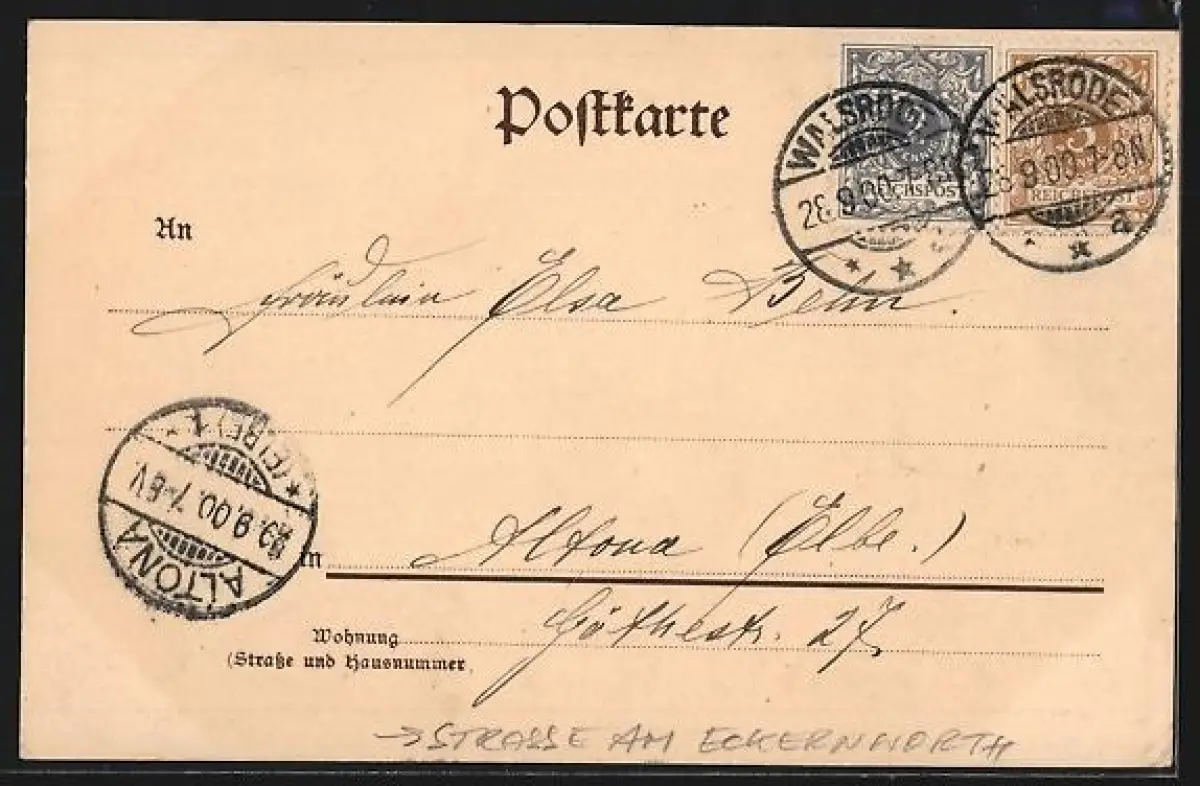 Postkarte
WALSRODE
WALSRODE
9.00.7-8N
a
REICHSPOST
REICHSPOST
An
Fräulein Elsa Behn.
ALTONA
* (ELBE) 1 *
29.9.00.7-8V
in Altona (Elbe.)
Wohnung
(Straße und Hausnummer
Göthestr. 27
→ STRASSE AM ECKERNWORTH